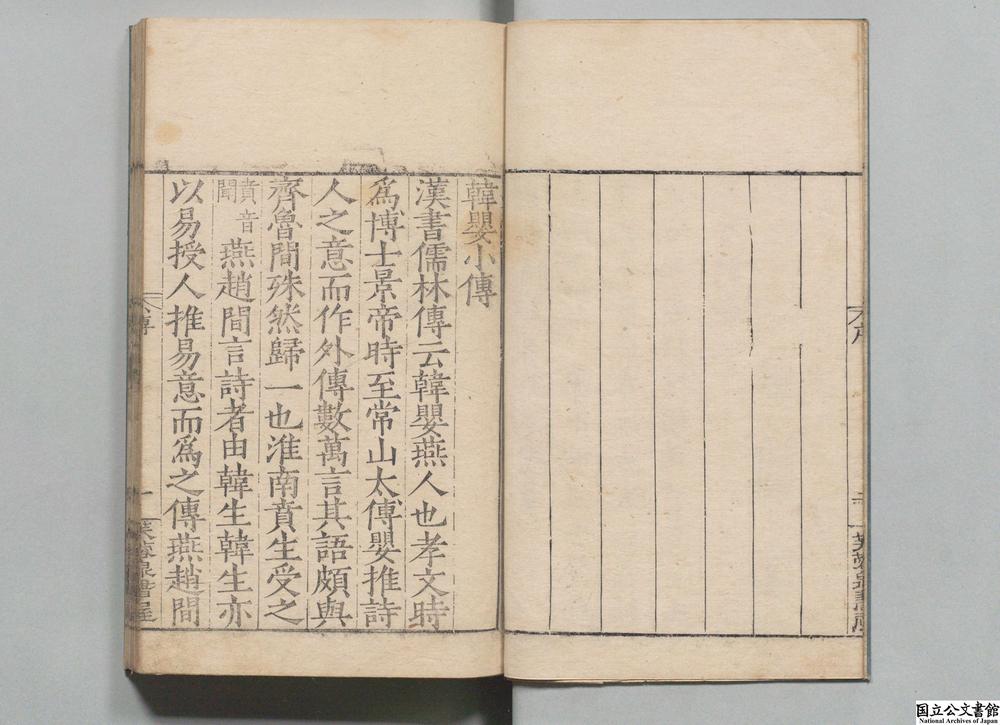 韓嬰小傳
漢書儒林傳云韓嬰燕人也孝文時
爲博士景帝時至常山太傅嬰推詩
人之意而作外傳數萬言其語頗與
齊魯間殊然歸一也淮南賁生受之
賁音聞燕趙間言詩者由韓生韓生亦
以易授人推易意而爲之傳燕趙間
国立公文書館
National Archives of Japan